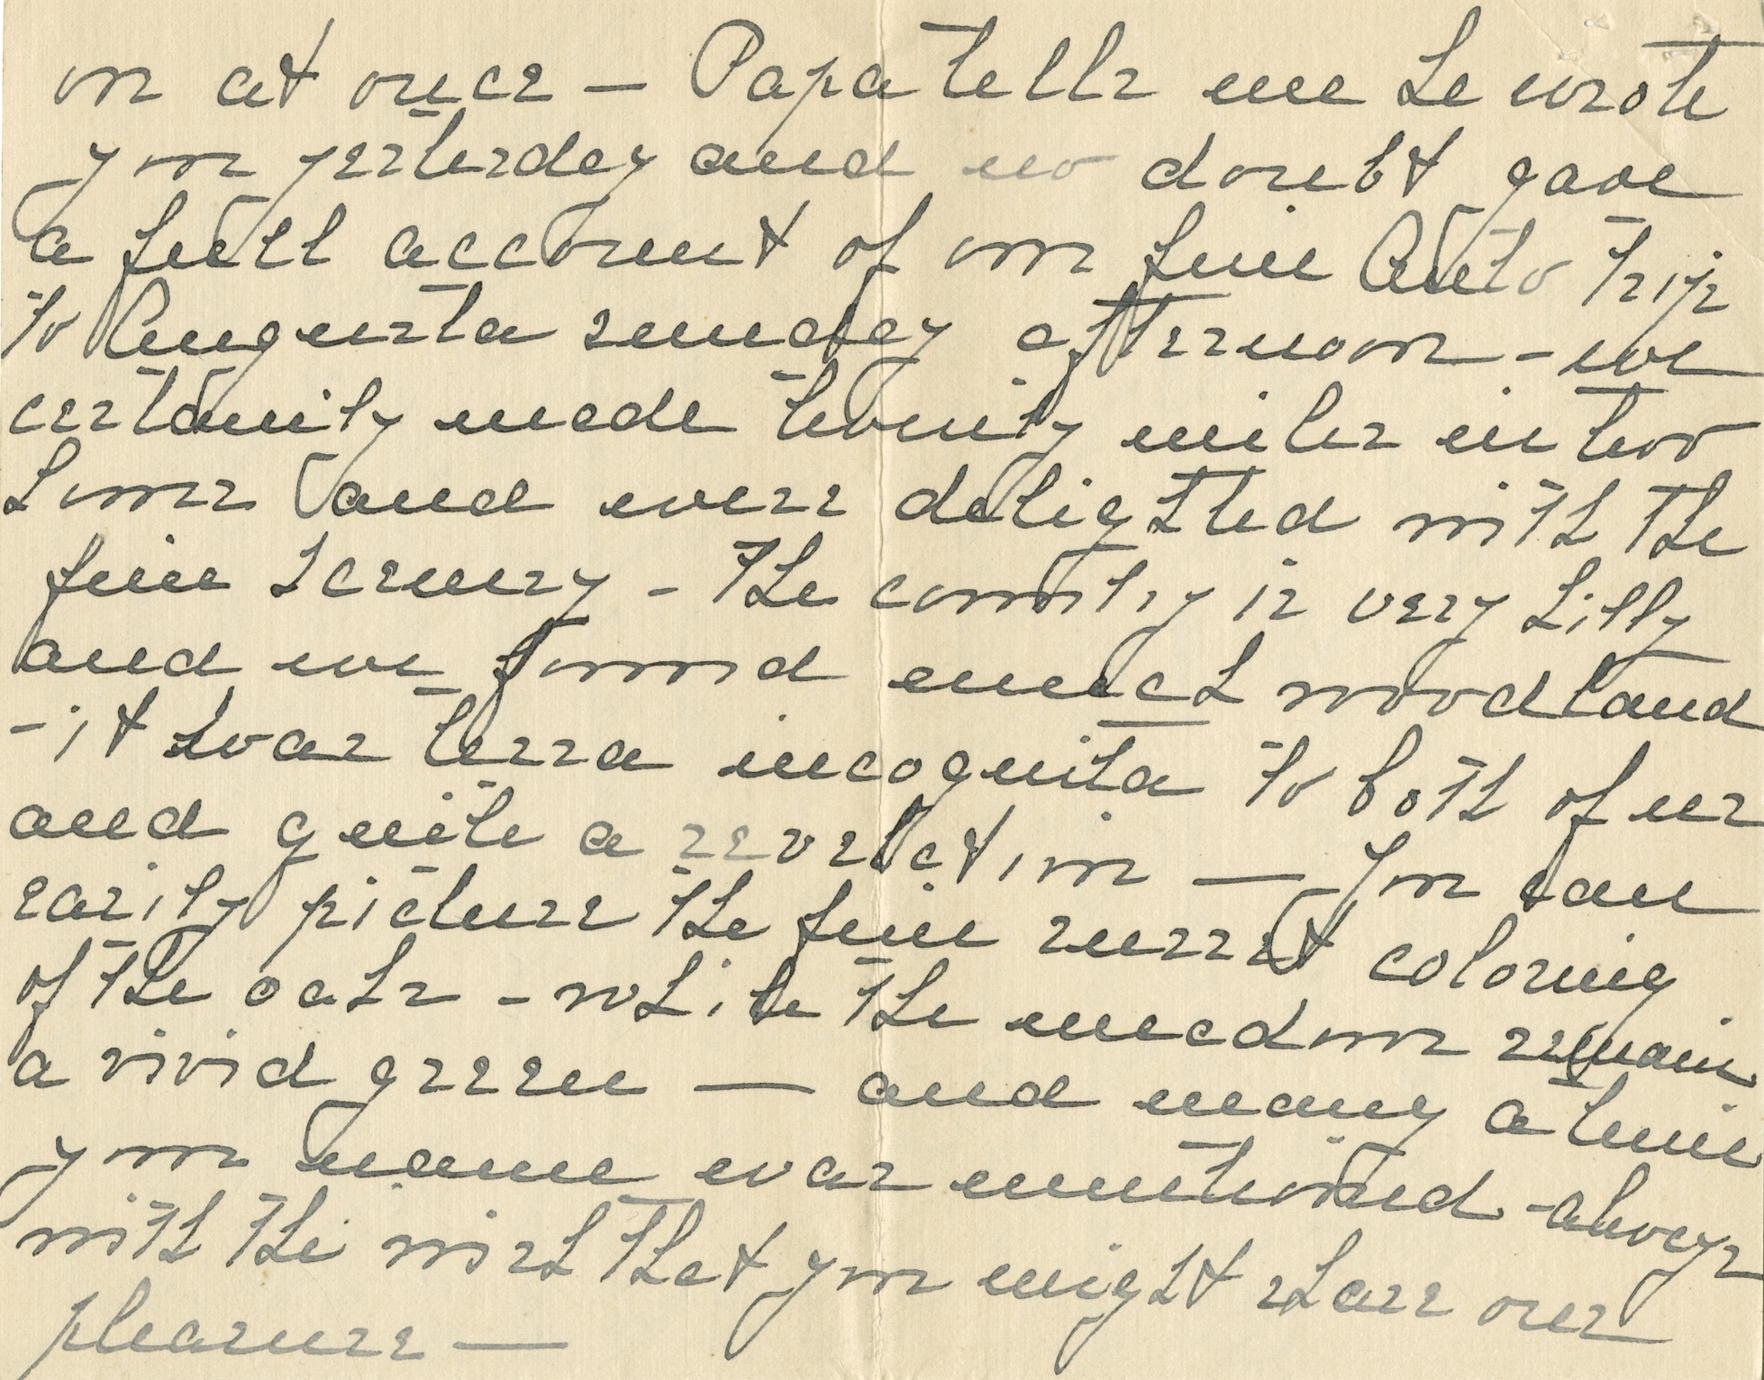 on at once — Papa tells me he wrote
you yesterday and no doubt gave
a full account of our fine Auto trip
to Augusta sunday afternoon - we
certainly made twenty miles in two
hours and were delighted with the
fine scenery - the country is very hilly
and we found much woodland
- it was terra incognita to both of us
and quite a revelation — You can
easily picture the fine russet coloring
of the oaks - while the meadows remain
a vivid green — and many a time
your name was mentioned - always
with the wish that you might share our
pleasure —